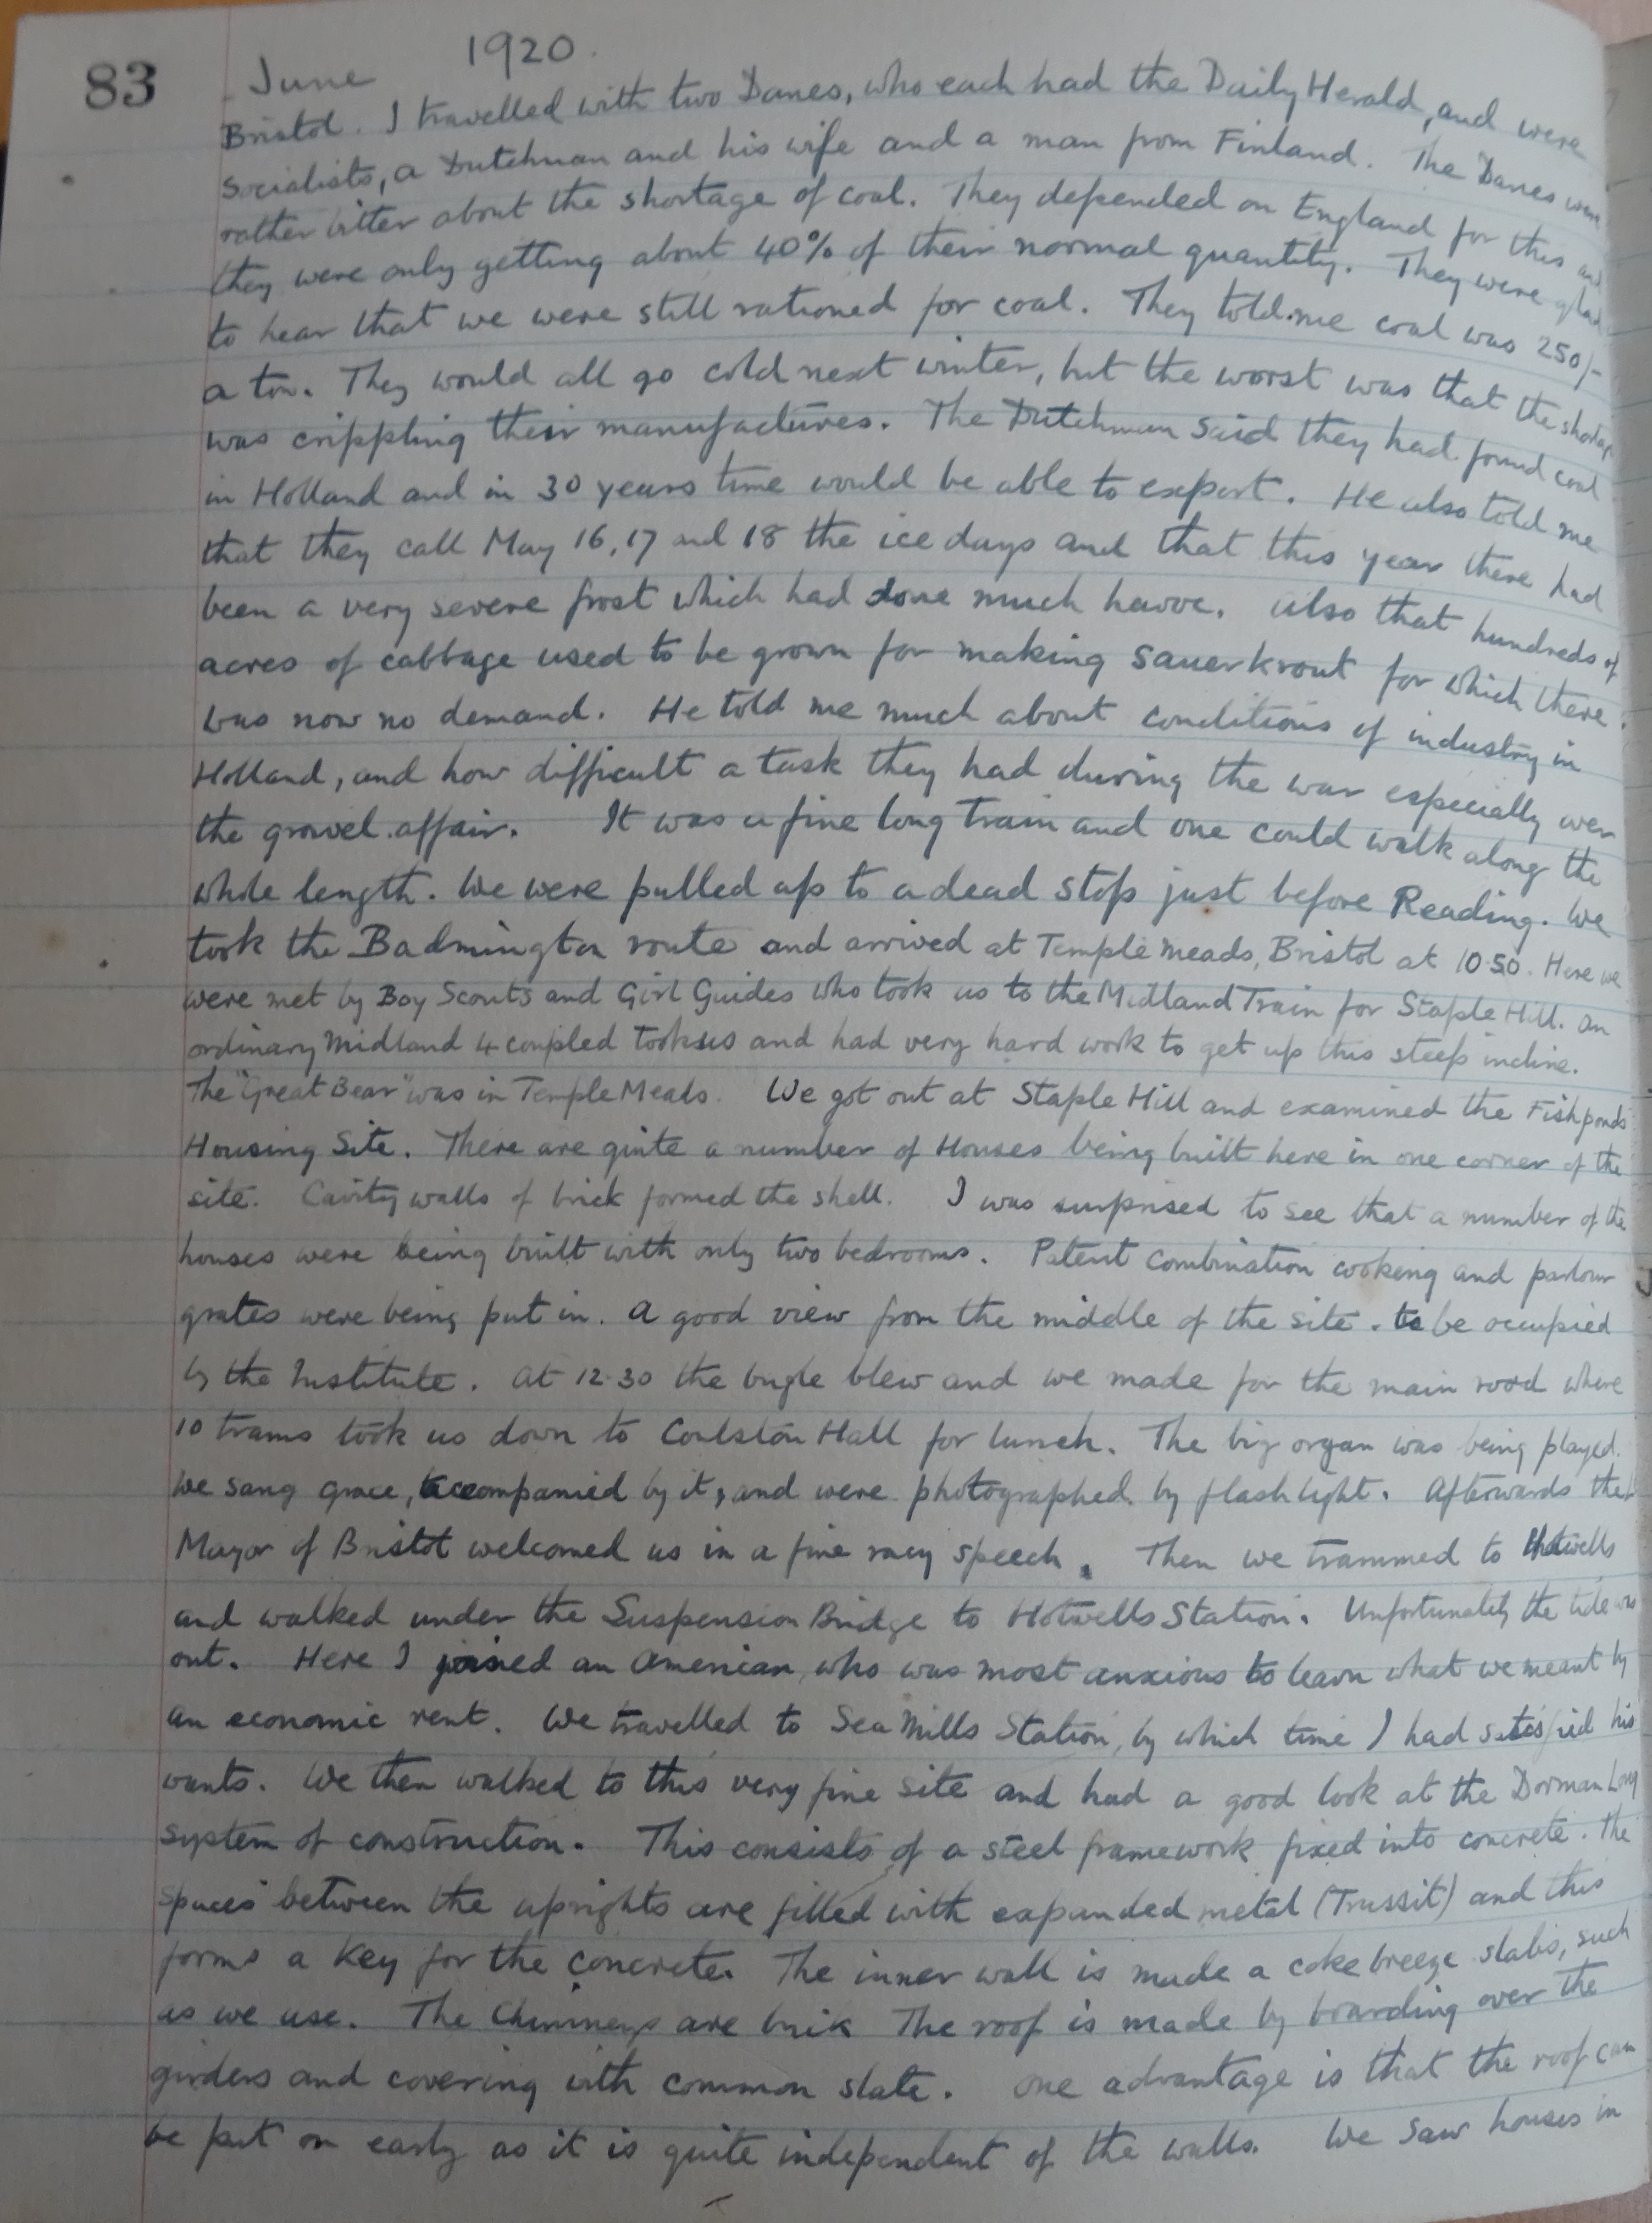 83
June 1920.
Bristol. I travelled with two Danes, who each had the Daily Herald, and were
Socialists, a Dutchman and his wife and a man from Finland. The Danes were
rather bitter about the shortage of coal. They depended on England for this and
they were only getting about 40% of their normal quantity. They were glad
to hear that we were still rationed for coal. They told me coal was 250/-
a ton. They would all go cold next winter, but the worst was that the shortage
was crippling their manufactures. The Dutchman said they had found coal
in Holland and in 30 years time would be able to export. He also told me
that they call May 16, 17 and 18 the ice days and that this year there had
been a very severe frost which had done much havoc. Also that hundreds of
acres of cabbage used to be grown for making sauerkrout for which there
was now no demand. He told me much about conditions of industry in
Holland, and how difficult a task they had during the war especially over
the gravel affair. It was a fine long train and one could walk along the
whole length. We were pulled up to a dead stop just before Reading. We
took the Badmington route and arrived at Temple Meads, Bristol at 10.50. Here we
were met by Boy Scouts and Girl Guides who took us to the Midland Train for Staple Hill. An
ordinary Midland 4 coupled took us and had very hard work to get up this steep incline.
The "Great Bear" was in Temple Meads. We got out at Staple Hill and examined the Fishponds
Housing Site. There are quite a number of Houses being built here in one corner of the
site. Cavity walls of brick formed the shell. I was surprised to see that a number of the
houses were being built with only two bedrooms. Patent combination cooking and parlour
grates were being put in. A good view from the middle of the site. to be occupied
by the Institute. At 12.30 the bugle blew and we made for the main road where
10 trams took us down to Coulston Hall for lunch. The big organ was being played.
We sang grace, accompanied by it, and were photographed by flashlight. Afterwards the
Mayor of Bristol welcomed us in a fine racy speech. Then we trammed to Hotwells
and walked under the Suspension Bridge to Hotwells Station. Unfortunately the tide was
out. Here I joined an American, who was most anxious to learn what we meant by
an economic rent. We travelled to Sea Mills Station, by which time I had satisfied his
wants. We then walked to this very fine site and had a good look at the Dorman Long
system of construction. This consists of a steel framework fixed into concrete. The
spaces between the uprights are filled with expanded metal (Trussit) and this
forms a key for the concrete. The inner wall is made a coke breeze slabs, such
as we use. The Chimneys are brik The roof is made by boarding over the
girders and covering with common slate. One advantage is that the roof can
be put on early as it is quite independent of the walls. We saw houses in